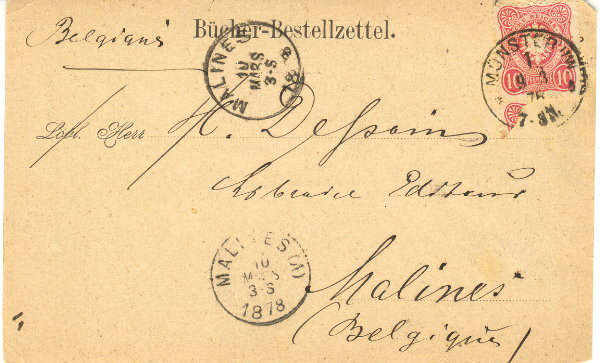 Bücher-Bestellzettel.
Belgique
MALINES
10
MARS
3-S
1878
MÜNSTER
10 10
78
7-8N.
Löbl. Herr H. Dessain
Libraire Editeur
MALINES (A)
10
MARS
3-S
1878
Malines
(Belgique)